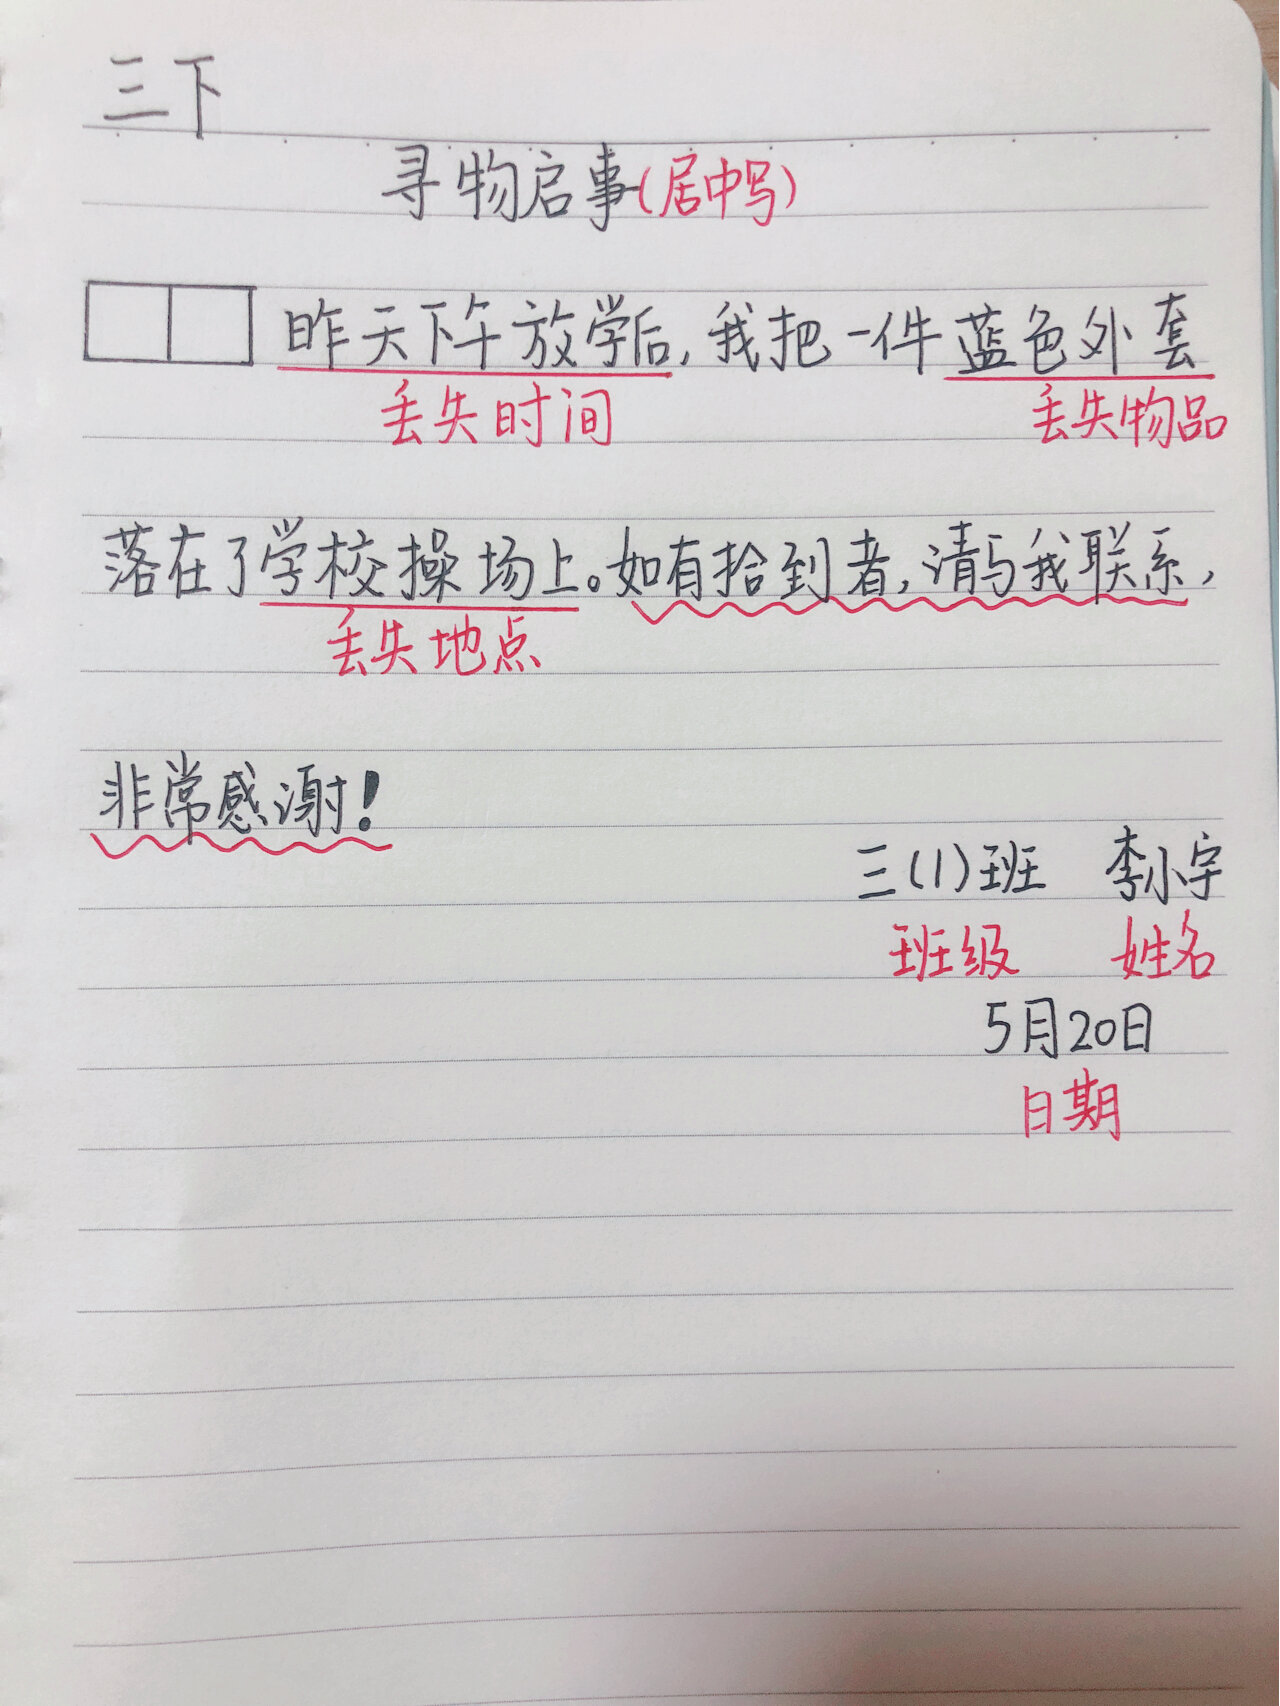 三下
寻物启事(居中写)
昨天下午放学后,我把一件蓝色外套
丢失时间 丢失物品
落在了学校操场上。如有拾到者,请与我联系,
丢失地点
非常感谢!
三(1)班 李小宇
班级 姓名
5月20日
日期